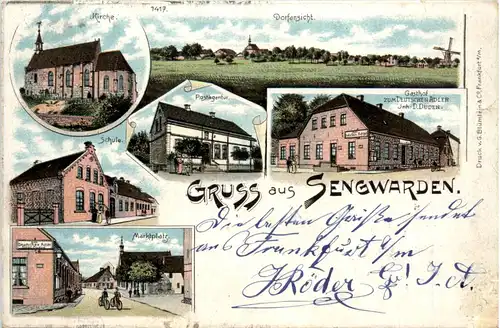 Kirche.
1417.
Dorfansicht.
Postagentur.
Gasthof
ZUM DEUTSCHEN ADLER
Joh. D. Duden.
Schule.
GRUSS aus SENGWARDEN.
Marktplatz.
Die besten Grüße sendet
aus Frankfurt a/m
J. Röder
Druck v. G. Blümlein & Co., Frankfurt a/M.